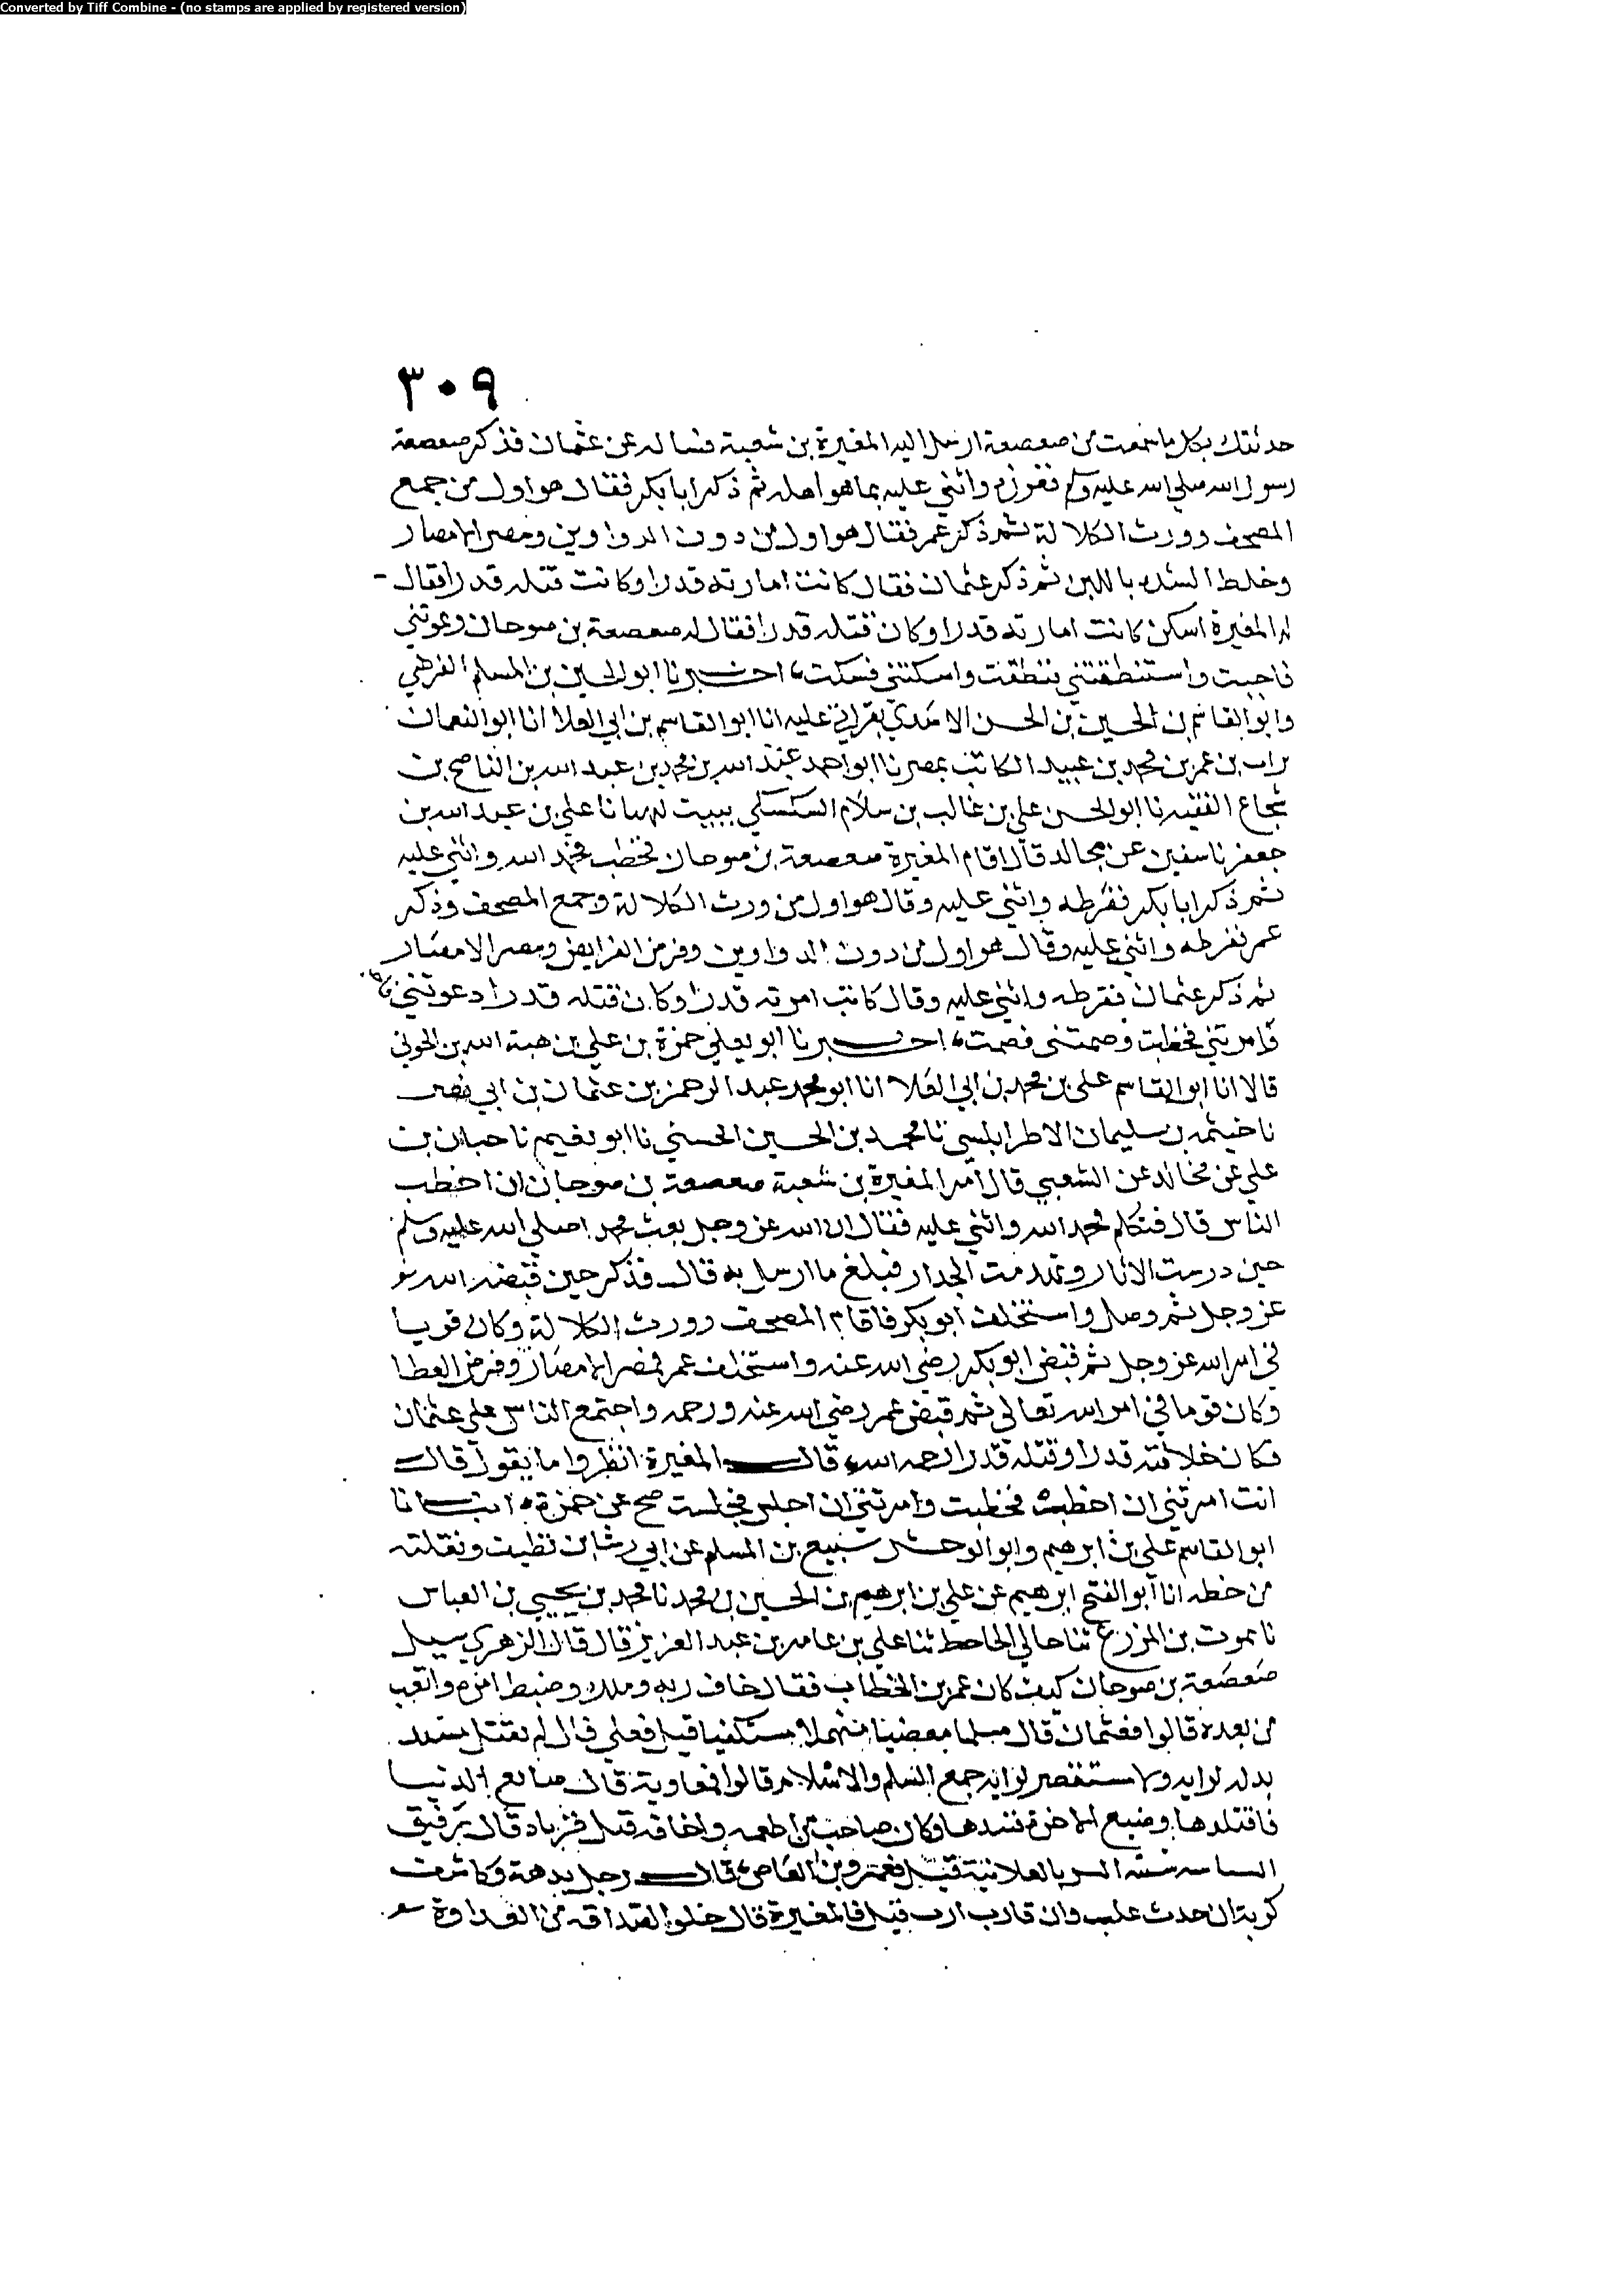 Converted by Tiff Combine - (no stamps are applied by registered version)
٣٠٩
حدثتك بكل ما سمعت من صعصعة ارسل اليه المغيرة بن شعبة فساله عن عثمان فذكر صعصعة
رسول الله صلى الله عليه وسلم واثني عليه بما هو اهله ثم ذكر ابا بكر فقال هو اول من جمع
المصحف وورث الكلالة ثم ذكر عمر فقال هو اول من دون الدواوين ومصر الامصار
وخلط الشدة باللين ثم ذكر عثمان فقال كانت امارته قدرا وكانت قتله قدرا فقال -
له المغيرة اسكن كانت امارته قدرا وكان قتله قدرا فقال له صعصعة بن صوحان دعوتني
فاجبت واستنطقتني فنطقت واسكتني فسكت، اخبرنا ابو الحسين بن المسلم الفرضي
وابو القاسم بن الحسين بن الحسن الاسدي بقراتي عليه انا ابو القاسم بن ابي العلا انا ابو النعمان
تراب بن عمر بن محمد بن عبيد الكاتب بمصر نا ابو احمد عبد الله بن محمد بن عبد الله بن الناصح بن
شجاع الفقيه نا ابو الحسن علي بن غالب بن سلام السكسكي ببيت لهيا نا علي بن عبد الله بن
جعفر نا سفين عن مجالد قال اقام المغيرة صعصعة بن صوحان فخطب فحمد الله واثني عليه
ثم ذكر ابا بكر فقرطه واثني عليه وقال هو اول من ورث الكلالة وجمع المصحف وذكر
عمر فقرطه واثني عليه وقال هو اول من دون الدواوين وفرض الفرايض ومصر الامصار
ثم ذكر عثمان فقرطه واثني عليه وقال كانت امرته قدرا وكان قتله قدرا دعوتني
وامرتني فخطبت وصمتني فصمت، اخبرنا ابو يعلي حمزة بن علي بن هبة الله بن الحوبي
قالا انا ابو القاسم علي بن محمد بن ابي العلا انا ابو محمد عبد الرحمن بن عثمان بن ابي نصر
نا خيثمة بن سليمان الاطرابلسي نا محمد بن الحسين الحسني نا ابو نعيم نا حبان بن
علي عن مجالد عن الشعبي قال امر المغيرة بن شعبة صعصعة بن صوحان ان اخطب
الناس قال فتكلم فحمد الله واثني عليه فقال ان الله عز وجل بعث محمدا صلى الله عليه وسلم
حين درست الاثار وتهدمت الجدار فبلغ ما ارسل به قال فذكر حين قبضه الله
عز وجل ثم وصل واستخلف ابو بكر فاقام المصحف وورث الكلالة وكان قويا
في امر الله عز وجل ثم قبض ابو بكر رضي الله عنه واستخلف عمر فمصر الامصار وفرض العطا
وكان قوما في امر الله تعالى ثم قبض عمر رضي الله عنه ورحمه واجتمع الناس على عثمان
فكان خلافته قدرا وقتله قدرا رحمه الله قال المغيرة انظروا ما يقول قال
انت امرتني ان اخطب فخطبت وامرتني ان اجلس فجلست صح عن حمزة، انبانا
ابو القاسم علي بن ابرهيم وابو الوحش سبيع بن المسلم عن ابي رشا بن نظيف ونقلته
من خطه انا ابو الفتح ابرهيم عن علي بن ابرهيم بن الحسين بن محمد نا محمد بن يحيي بن العباس
نا يموت بن المزرع ثنا خالي الجاحظ ثنا علي بن عامر بن عبد العزيز قال قال الزهري سيل
صعصعة بن صوحان كيف كان عمر بن الخطاب فقال خاف ربه وملك وضبط امره واتعب
من بعده قالوا فعثمان قال قيل فعلي قال لم يقتل
لرايه جمع السلم والاسلام قالوا فمعاوية قال صانع الدنيا
فاقتلدها وضيع الاخرة فنبذها وكان صاحب من اطعمه واخافه قيل فزياد قال
السر بالعلانية قيل فعمرو بن العاص قال رجل
كربة ان حدث وان قارب ارب قيل فالمغيرة قال خلو الصداقة من العداوة